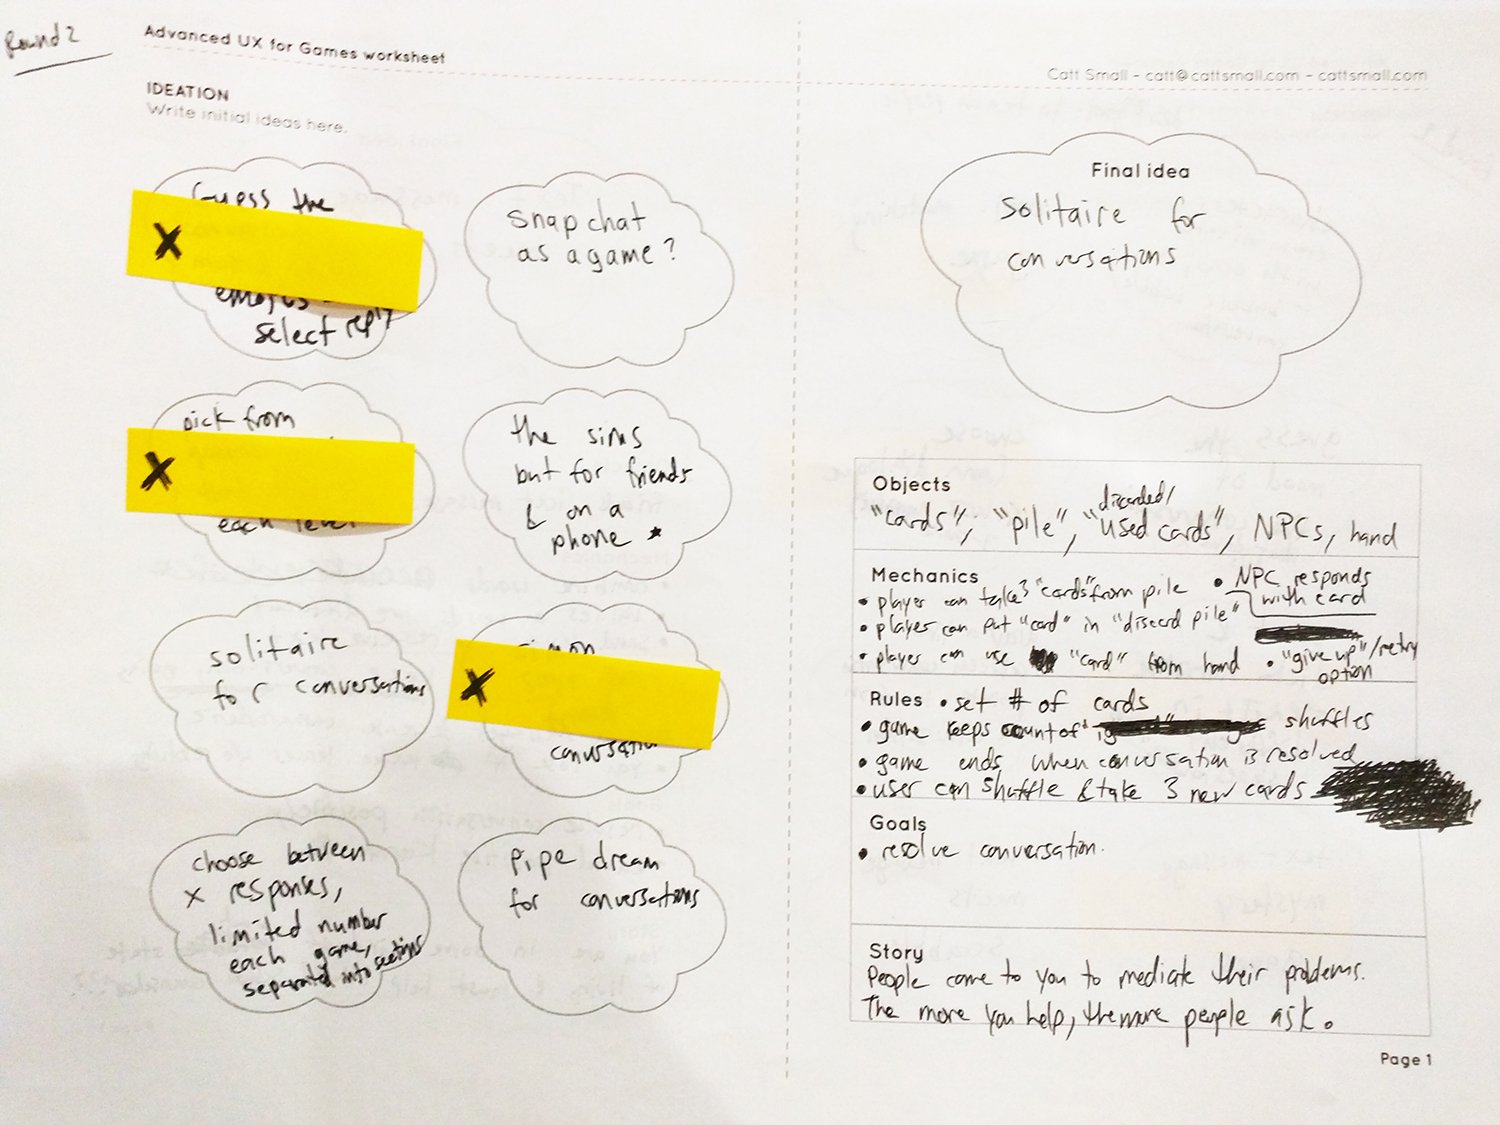 Round 2
Advanced UX for Games worksheet
Catt Small - catt@cattsmall.com - cattsmall.com
IDEATION
Write initial ideas here.
Guess the
emojis
select reply
Snapchat
as a game?
pick from
each level
the sims
but for friends
& on a
phone
solitaire
for conversations
simon
conversation
choose between
x responses,
limited number
each game,
separated into sections
pipe dream
for conversations
Final idea
Solitaire for
conversations
Objects
discarded/
"cards"; "pile", "used cards", NPCs, hand
Mechanics
• player can take 3 "cards" from pile
• player can put "card" in "discard pile"
• player can use "card" from hand
• NPC responds
with card
• "give up"/retry
option
Rules • set # of cards
• game keeps count of shuffles
• game ends when conversation is resolved
• user can shuffle & take 3 new cards
Goals
• resolve conversation.
Story
People come to you to mediate their problems.
The more you help, the more people ask.
Page 1